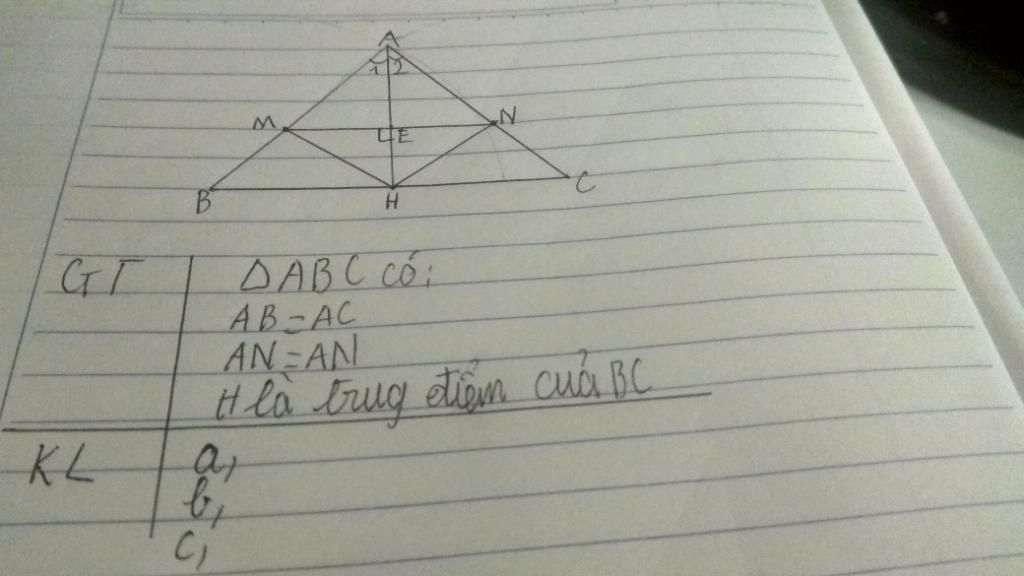 A
1 2
M E N
B H C
GT ΔABC có:
AB=AC
AN=AN
H là trug điểm của BC
KL a,
b,
c,